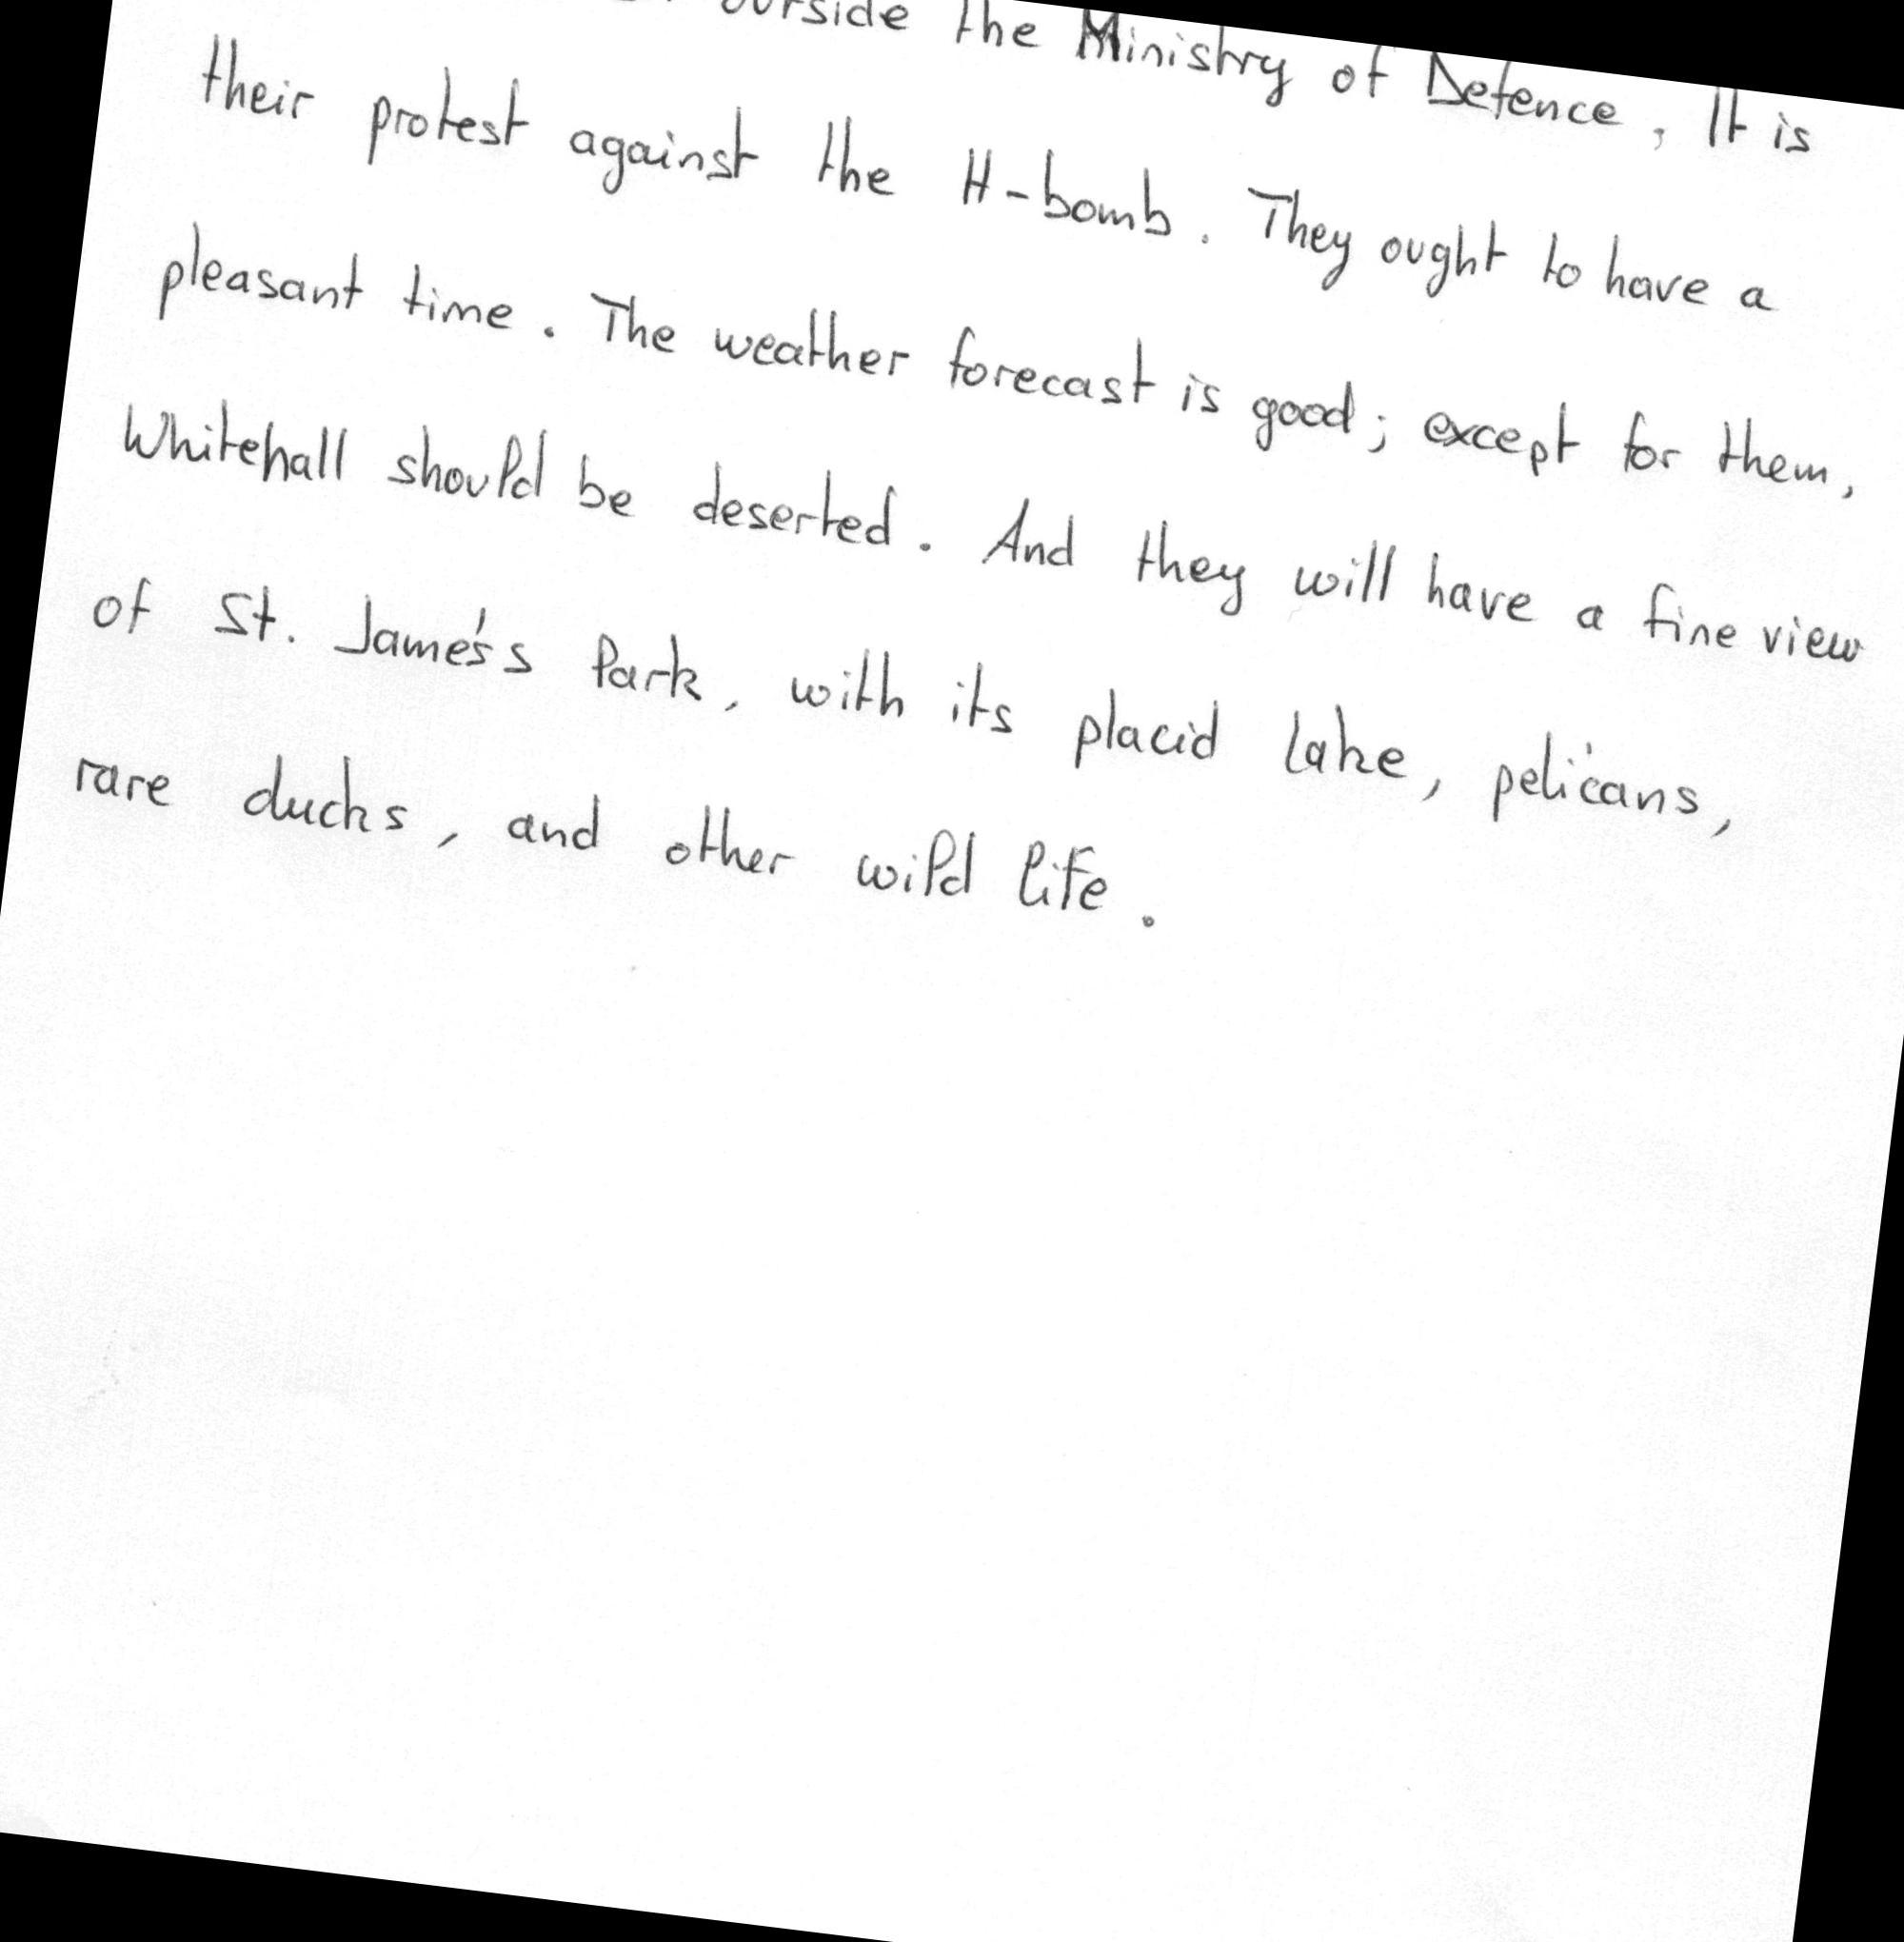 outside the Ministry of Defence. It is
their protest against the H-bomb. They ought to have a
pleasant time. The weather forecast is good; except for them,
Whitehall should be deserted. And they will have a fine view
of St. James's Park, with its placid lake, pelicans,
rare ducks, and other wild life.